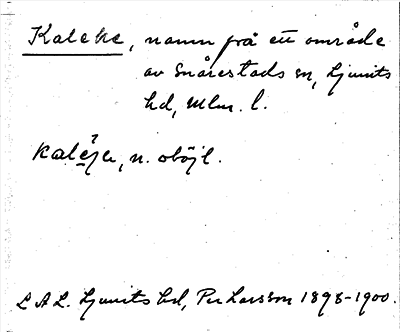 Kaleke, namn på ett område
av Snårestads sn, Ljunits
hd, Mlm. l.
n. oböjl.
L A L. Ljunits hd, Per Larsson 1898-1900.